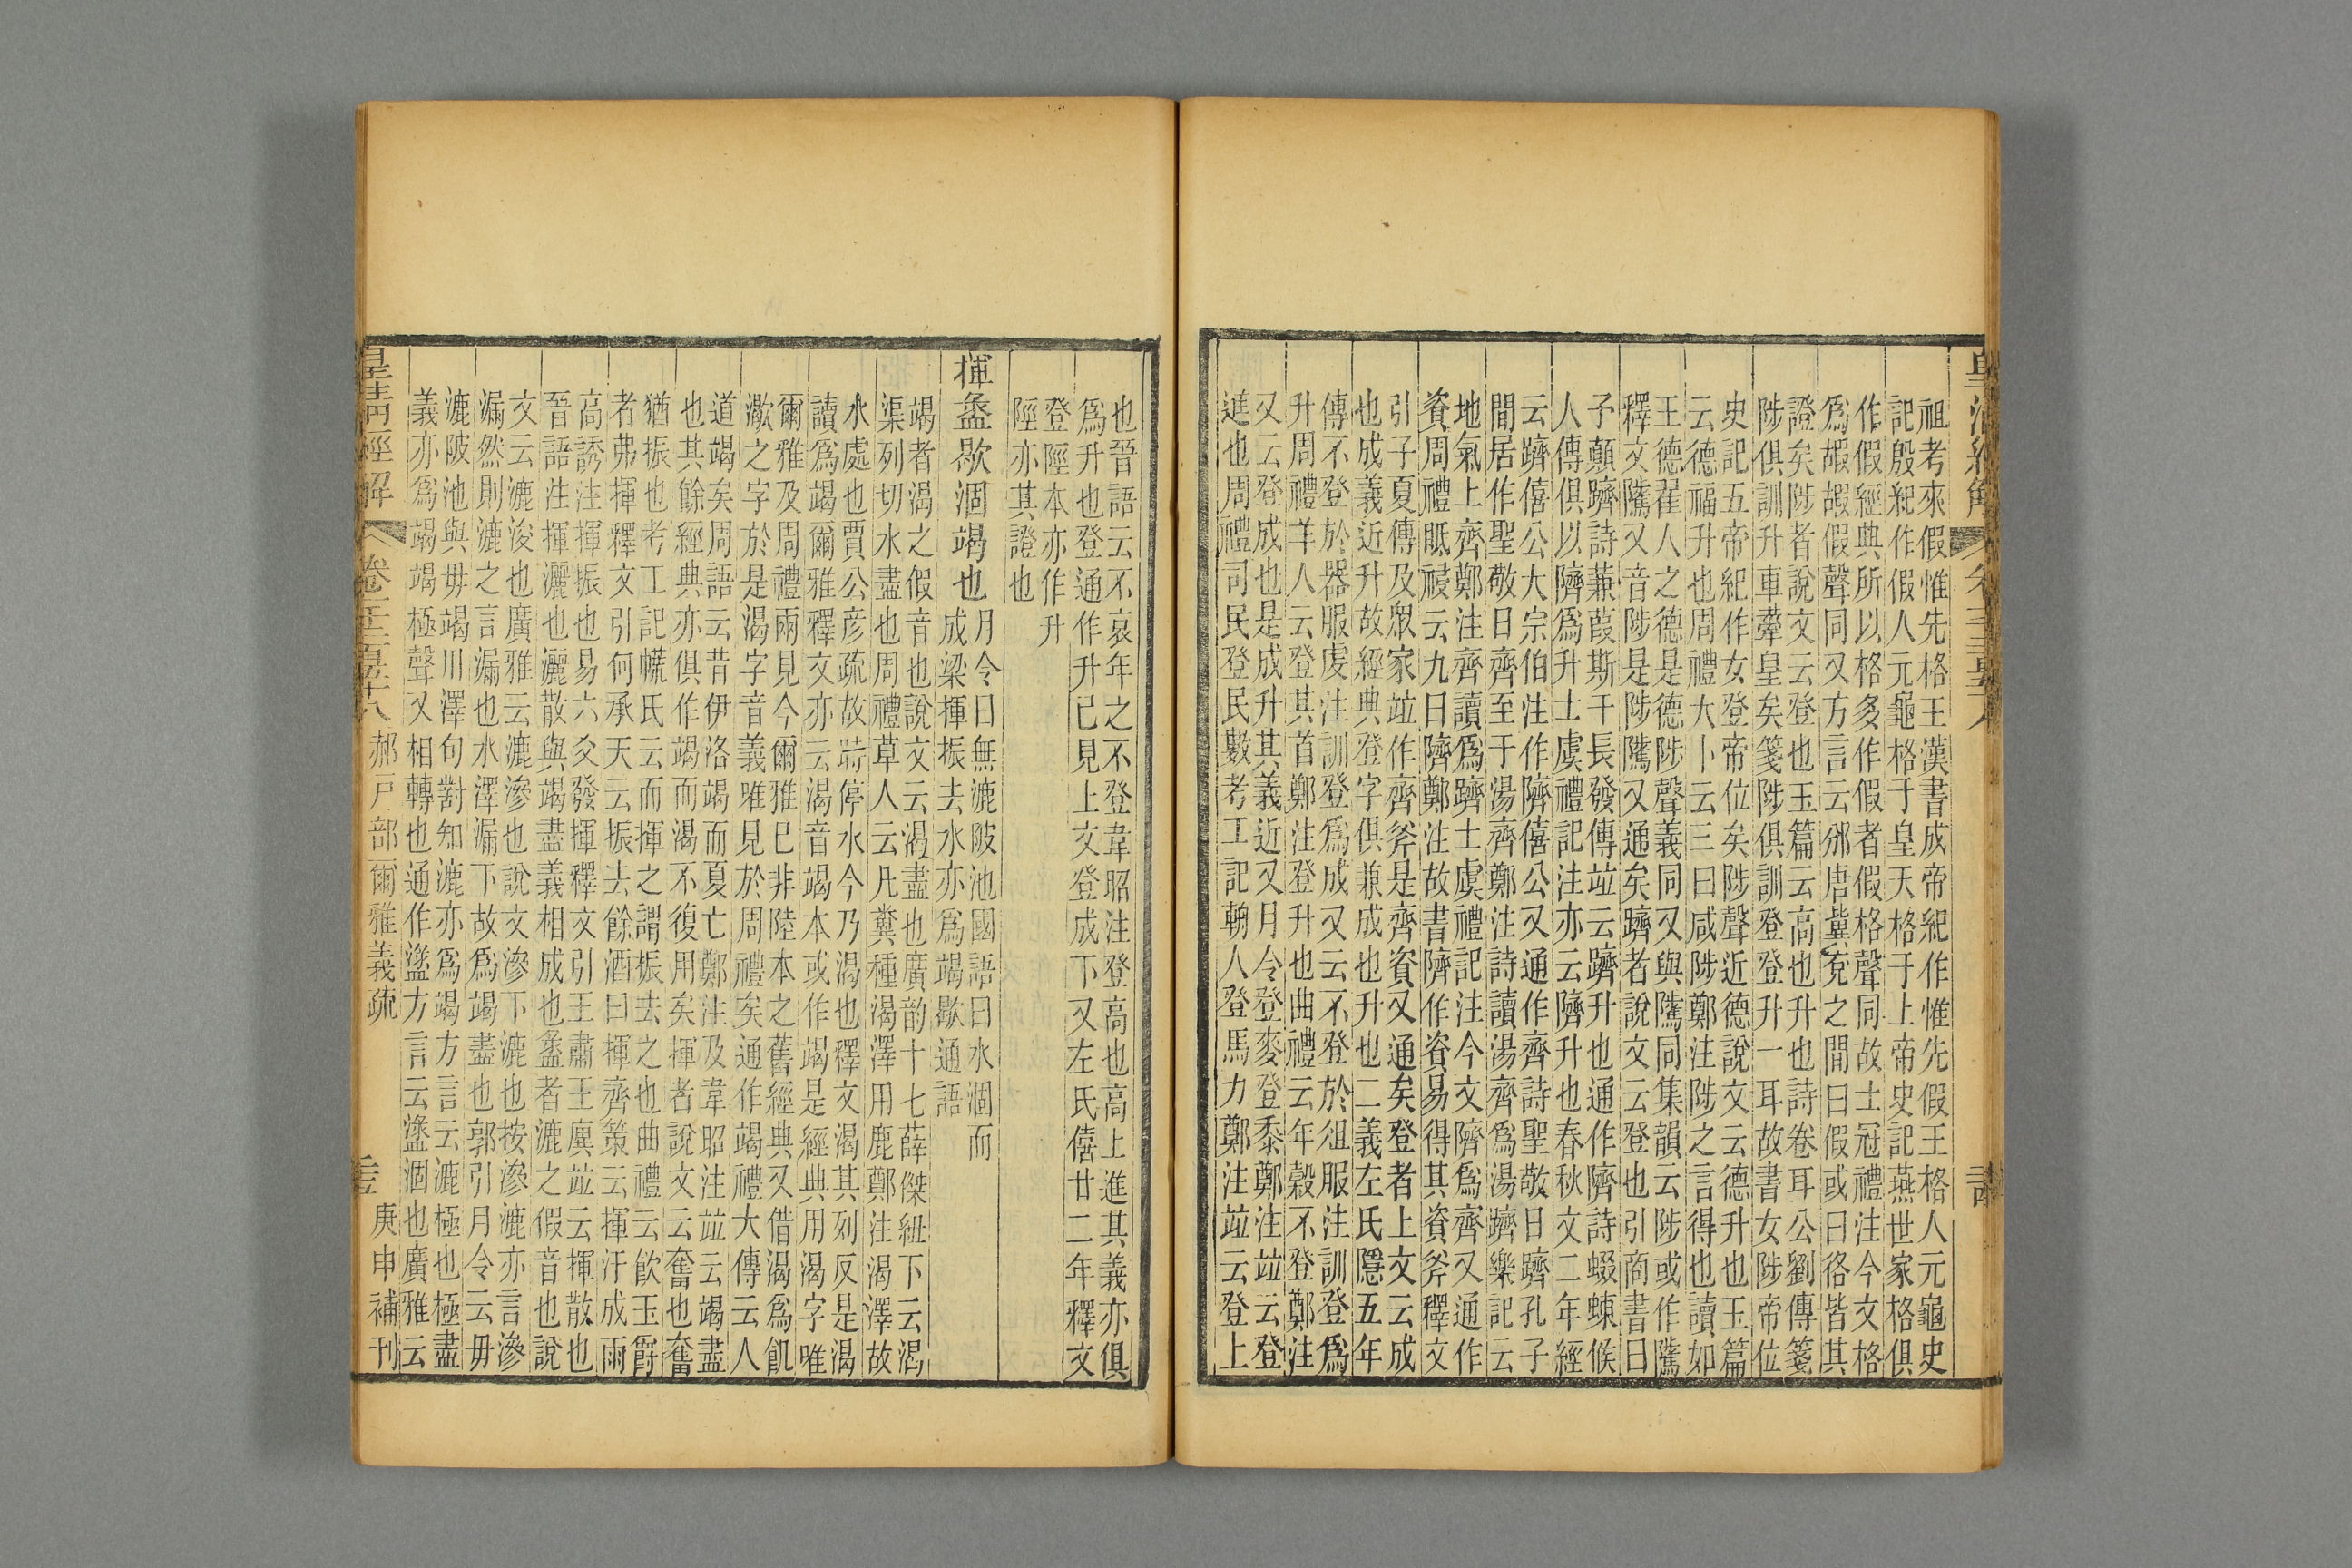 皇清經解
祖考來假惟先格王漢書成帝紀作惟先假王格人元龜史
記殷紀作假人元龜格于皇天格于上帝史記燕世家格俱
作假經典所以格多作假者假格聲同故士冠禮注今文格
爲嘏嘏假聲同又方言云邠唐冀兗之閒曰假或曰佫皆其
證矣陟者說文云登也玉篇云高也升也詩卷耳公劉傳箋
陟俱訓升車舝皇矣箋陟俱訓登登升一耳故書女陟帝位
史記五帝紀作女登帝位矣陟聲近德說文云德升也玉篇
云德福升也周禮大卜云三曰咸陟鄭注陟之言得也讀如
王德翟人之德是德陟聲義同又與隲同集韻云陟或作隲
釋文隲又音陟是陟隲又通矣躋者說文云登也引商書曰
予顛躋詩蒹葭斯干長發傳竝云躋升也通作隮詩蝃蝀候
人傳俱以隮爲升士虞禮記注亦云隮升也春秋文二年經
云躋僖公大宗伯注作隮僖公又通作齊詩聖敬日躋孔子
閒居作聖敬日齊至于湯齊鄭注詩讀湯齊爲湯躋樂記云
地氣上齊鄭注齊讀爲躋士虞禮記注今文隮爲齊又通作
資周禮眡祲云九曰隮鄭注故書隮作資易得其資斧釋文
引子夏傳及眾家竝作齊斧是齊資又通矣登者上文云成
也成義近升故經典登字俱兼成也升也二義左氏隱五年
傳不登於器服虔注訓登爲成又云不登於俎服注訓登爲
升周禮羊人云登其首鄭注登升也曲禮云年穀不登鄭注
又云登成也是成升其義近又月令登麥登黍鄭注竝云登
進也周禮司民登民數考工記輈人登馬力鄭注竝云登上
也晉語云不哀年之不登韋昭注登高也高上進其義亦俱
爲升也登通作升已見上文登成下又左氏僖廿二年釋文
登陘本亦作升
陘亦其證也
揮盝歇涸竭也
月令曰無漉陂池國語曰水涸而
成梁揮振去水亦爲竭歇通語
竭者渴之假音也說文云渴盡也廣韵十七薛傑紐下云渴
渠列切水盡也周禮草人云凡糞種渴澤用鹿鄭注渴澤故
水處也賈公彥疏故時停水今乃渴也釋文渴其列反是渴
讀爲竭爾雅釋文亦云渴音竭本或作竭是經典用渴字唯
爾雅及周禮兩見今爾雅已非陸本之舊經典又借渴爲飢
㵣之字於是渴字音義唯見於周禮矣通作竭禮大傳云人
道竭矣周語云昔伊洛竭而夏亡鄭注及韋昭注竝云竭盡
也其餘經典亦俱作竭而渴不復用矣揮者說文云奮也奮
猶振也考工記㡛氏云而揮之謂振去之也曲禮云飮玉爵
者弗揮釋文引何承天云振去餘酒曰揮齊策云揮汗成雨
高誘注揮振也易六爻發揮釋文引王肅王廙竝云揮散也
晉語注揮灑也灑散與竭盡義相成也盝者漉之假音也說
文云漉浚也廣雅云漉滲也說文滲下漉也按滲漉亦言滲
漏然則漉之言漏也水澤漏下故爲竭盡也郭引月令云毋
漉陂池與毋竭川澤句對知漉亦爲竭方言云漉極也極盡
義亦爲竭竭極聲又相轉也通作溘方言云溘涸也廣雅云
皇清經解 卷千二百五十八 郝戶部爾雅義疏 庚申補刊